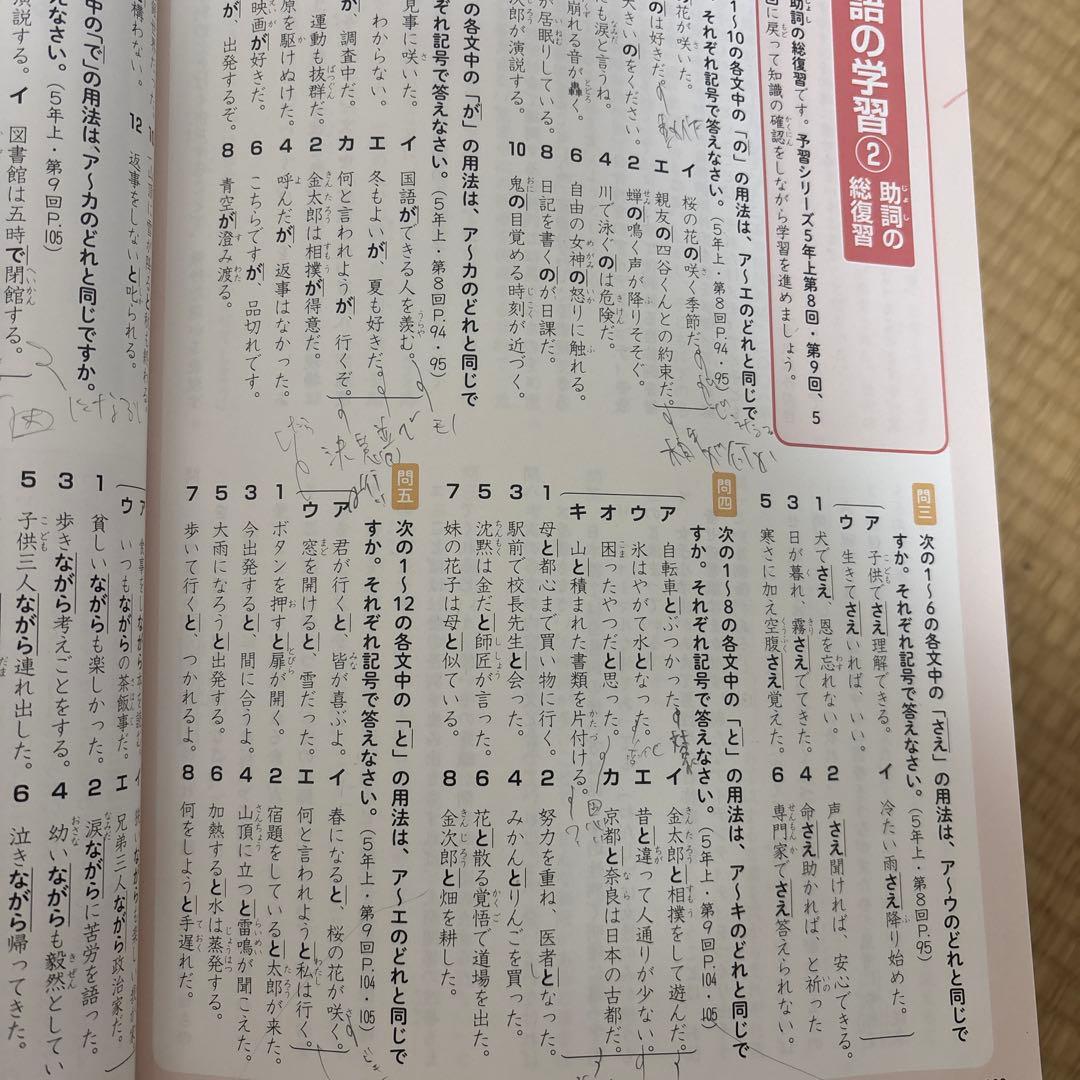 語の学習② 助詞の総復習
助詞の総復習です。予習シリーズ5年上第8回・第9回、5
回に戻って知識の確認をしながら学習を進めましょう。
1〜10の各文中の「の」の用法は、ア〜エのどれと同じで
それぞれ記号で答えなさい。（5年上・第8回P.94・95）
花が咲いた。 イ 桜の花の咲く季節だ。
のは好きだ。 エ 親友の四谷くんとの約束だ。
大きいのをください。 2 蝉の鳴く声が降りそそぐ。
も涙と言うね。 4 川で泳ぐのは危険だ。
崩れる音が轟く。 6 自由の女神の怒りに触れる。
が居眠りしている。 8 日記を書くのが日課だ。
次郎が演説する。 10 鬼の目覚める時刻が近づく。
各文中の「が」の用法は、ア〜カのどれと同じで
ぞれ記号で答えなさい。（5年上・第8回P.94・95）
見事に咲いた。 イ 国語ができる人を羨む。
わからない。 エ 冬もよいが、夏も好きだ。
が、調査中だ。 カ 何と言われようが、行くぞ。
運動も抜群だ。 2 金太郎は相撲が得意だ。
原を駆けぬけた。 4 呼んだが、返事はなかった。
映画が好きだ。 6 こちらですが、品切れです。
が 出発するぞ。 8 青空が澄み渡る。
問三 次の1〜6の各文中の「さえ」の用法は、ア〜ウのどれと同じで
すか。それぞれ記号で答えなさい。（5年上・第8回P.95）
ア 子供でさえ理解できる。 イ 冷たい雨さえ降り始めた。
ウ 生きてさえいれば、いい。
1 犬でさえ、恩を忘れない。 2 声さえ聞ければ、安心できる。
3 日が暮れ、霧さえでてきた。 4 命さえ助かれば、と祈った
5 寒さに加え空腹さえ覚えた。 6 専門家でさえ答えられない。
問四 次の1〜8の各文中の「と」の用法は、ア〜キのどれと同じで
すか。それぞれ記号で答えなさい。（5年上・第9回P.104・105）
ア 自転車とぶつかった。 イ 金太郎と相撲をして遊んだ。
ウ 氷はやがて水となった。 エ 昔と違って人通りが少ない。
オ 困ったやつだと思った。 カ 京都と奈良は日本の古都だ。
キ 山と積まれた書類を片付ける。
1 母と都心まで買い物に行く。 2 努力を重ね、医者となった。
3 駅前で校長先生と会った。 4 みかんとりんごを買った。
5 沈黙は金だと師匠が言った。 6 花と散る覚悟で道場を出た。
7 妹の花子は母と似ている。 8 金次郎と畑を耕した。
問五 次の1〜12の各文中の「と」の用法は、ア〜エのどれと同じで
すか。それぞれ記号で答えなさい。（5年上・第9回P.104・105）
ア 君が行くと、皆が喜ぶよ。 イ 春になると、桜の花が咲く。
ウ 窓を開けると、雪だった。 エ 何と言われようと私は行く。
1 ボタンを押すと扉が開く。 2 宿題をしていると太郎が来た。
3 今出発すると、間に合うよ。 4 山頂に立つと雷鳴が聞こえた。
5 大雨になろうと出発する。 6 加熱すると水は蒸発する。
7 歩いて行くと、つかれるよ。 8 何をしようと手遅れだ。
構わない。 12 返事をしないと叱られる。
中の「で」の用法は、ア〜カのどれと同じですか。
えなさい。（5年上・第9回P.105）
演説する。 イ 図書館は五時で閉館する。
ウ いつもながらの茶飯事だ。 エ 兄弟三人ながら政治家だ。
1 貧しいながらも楽しかった。 2 涙ながらに苦労を語った。
3 歩きながら考えごとをする。 4 幼いながらも毅然としてい
5 子供三人ながら連れ出した。 6 泣きながら帰ってきた。